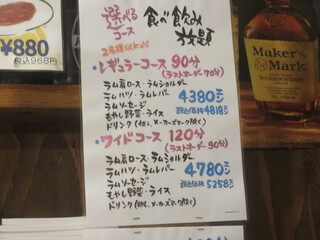 ¥880
税込968円
選べる
コース
食べ飲み
放題
2名様
・レギュラーコース 90分
(ラストオーダー70分)
ラム肩ロース・ラムショルダー
ラムハツ・ラムレバー
ラムソーセージ
もやし野菜・ライス
ドリンク(但し、メーカーズマーク除く)
4380
税込価格 4818
・ワイドコース 120分
(ラストオーダー90分)
ラム肩ロース・ラムショルダー
ラムハツ・ラムレバー
ラムソーセージ
もやし野菜・ライス
ドリンク(但し、メーカーズマーク除く)
4780
税込価格 5258
Maker's
Mark